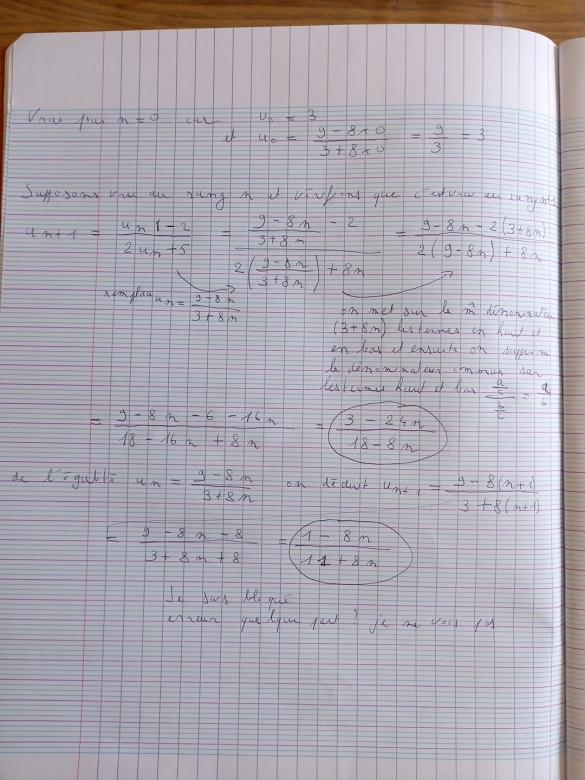 Vrai pour n = 0 car u₀ = 3
et u₀ = (9 - 8×0)/(3 + 8×0) = 9/3 = 3
Supposons vrai au rang n et vérifions que c'est vrai au rang n+1
u n+1 = (un - 2)/(2un + 5) = ((9 - 8n)/(3 + 8n) - 2)/(2((9 - 8n)/(3 + 8n)) + 8n) = (9 - 8n - 2(3 + 8n))/(2(9 - 8n) + 8n)
remplace un = (9 - 8n)/(3 + 8n)
on met sur le m̂ dénominateur
(3 + 8n) les termes en haut et
en bas et ensuite on supprime
le dénominateur commun sur
les termes haut et bas (a/c)/(b/c) = a/b
= (9 - 8n - 6 - 16n)/(18 - 16n + 8n) = (3 - 24n)/(18 - 8n)
de l'égalité un = (9 - 8n)/(3 + 8n) on déduit un+1 = (9 - 8(n+1))/(3 + 8(n+1))
= (9 - 8n - 8)/(3 + 8n + 8) = (1 - 8n)/(11 + 8n)
Je suis bloqué
erreur quelque part ? je ne vois pas